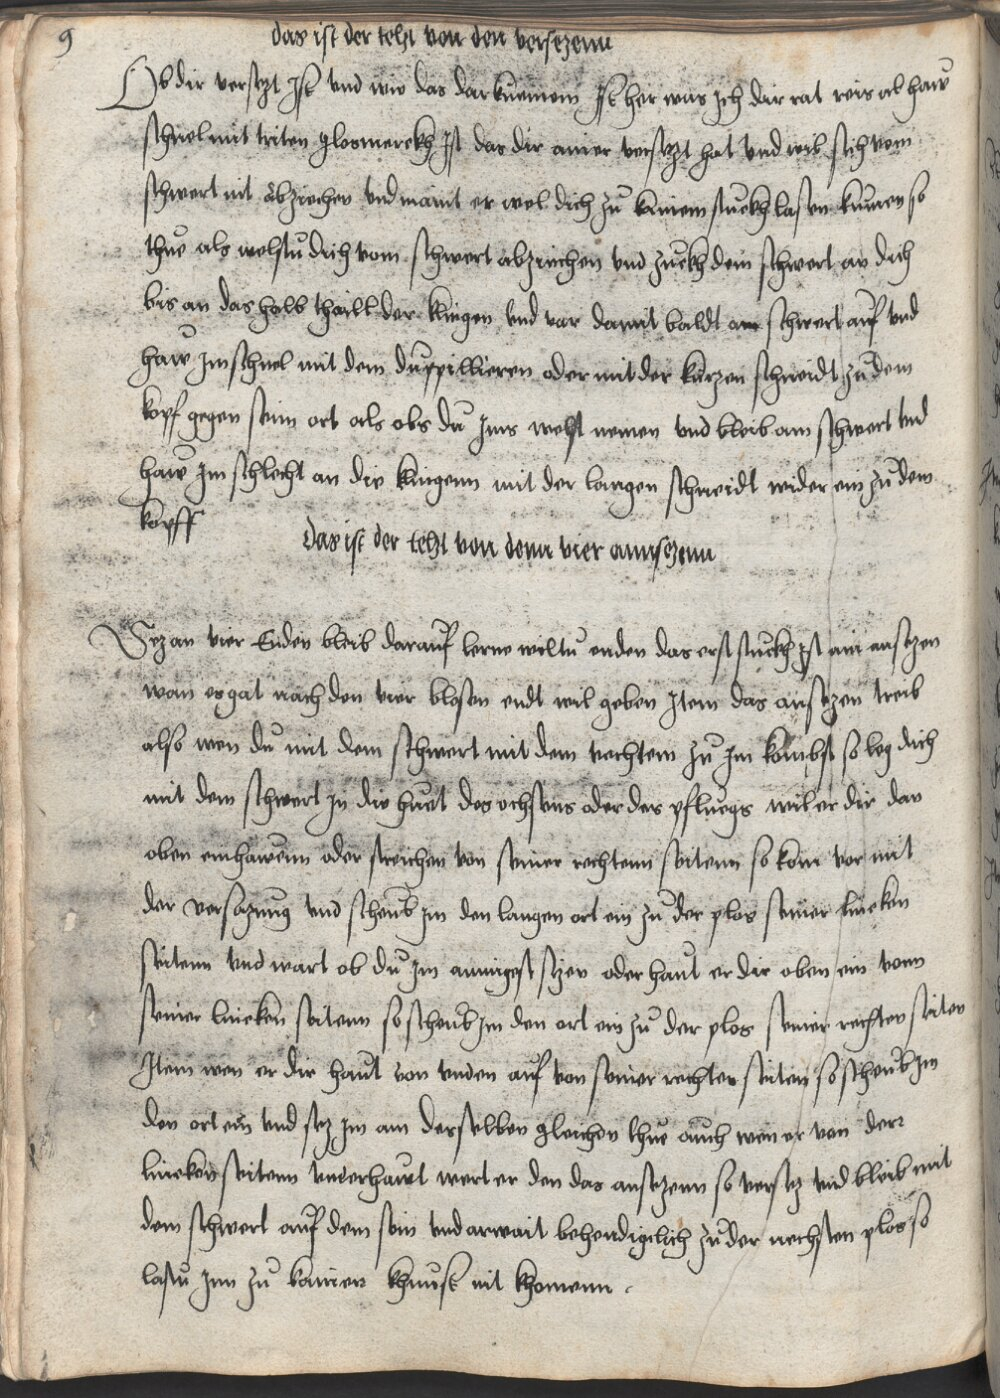 9
das ist der tehst von den versezenn
Ob dir versezt Ist vnd wie das dar kumen Ist her was Ich dir rat reis ab haw
schnel mit triten glos merckh Ist das dir ainer versezt hat vnd wil sich vom
schwert nit abziechen vnd maint er wel dich zu kainem stuckh lasen kumen so
thue als welstu dich vom schwert abziechen vnd zuckh dein schwert an dich
bis an das halb thaill der klingen vnd var damit baldt am schwert auf vnd
haw Im schnel mit dem duppillieren oder mit der kurzen schneidt zu dem
kopf gegen seim ort als obs du Ims welst nemen vnd bleib am schwert vnd
haw Im schlecht an die klingenn mit der langen schneidt wider ein zu dem
kopff
das ist der tehst von denn vier annsezenn
Sez an vier Enden bleib darauf lerne wiltu enden das erst stuckh Ist ain ansezen
wan es gat nach den vier blosen endt wil geben Item das ansezen treib
also wen du mit dem schwert mit dem vechtem zu Im kombst so leg dich
mit dem schwert In die huet des ochsens oder des pfluegs wil er dir dan
oben einhawenn oder streichen von seiner rechtenn seitenn so kom vor mit
der versazung vnd scheub Im den langen ort ein zu der plos seiner lincken
seitenn vnd wart ob du Im anmigest sezen oder haut er dir oben ein vonn
seiner lincken seitenn so scheub Im den ort ein zu der plos seiner rechten seiten
Item wen er dir haut von vnden auf von seiner rechten seiten so scheub Im
den ort ein vnd sez Im am derselben gleichen thue auch wen er von der
lincken seitenn vnderhawt wert er den das ansezenn so versez vnd bleib mit
dem schwert auf dem sein vnd arwait behendigclich zu der nechsten plos so
lastu Inn zu kainer khunst nit khomenn.